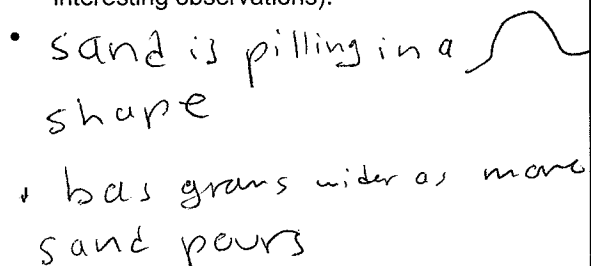 interesting observations).
• sand is pilling in a
shape
• bas grows wider as more
sand pours